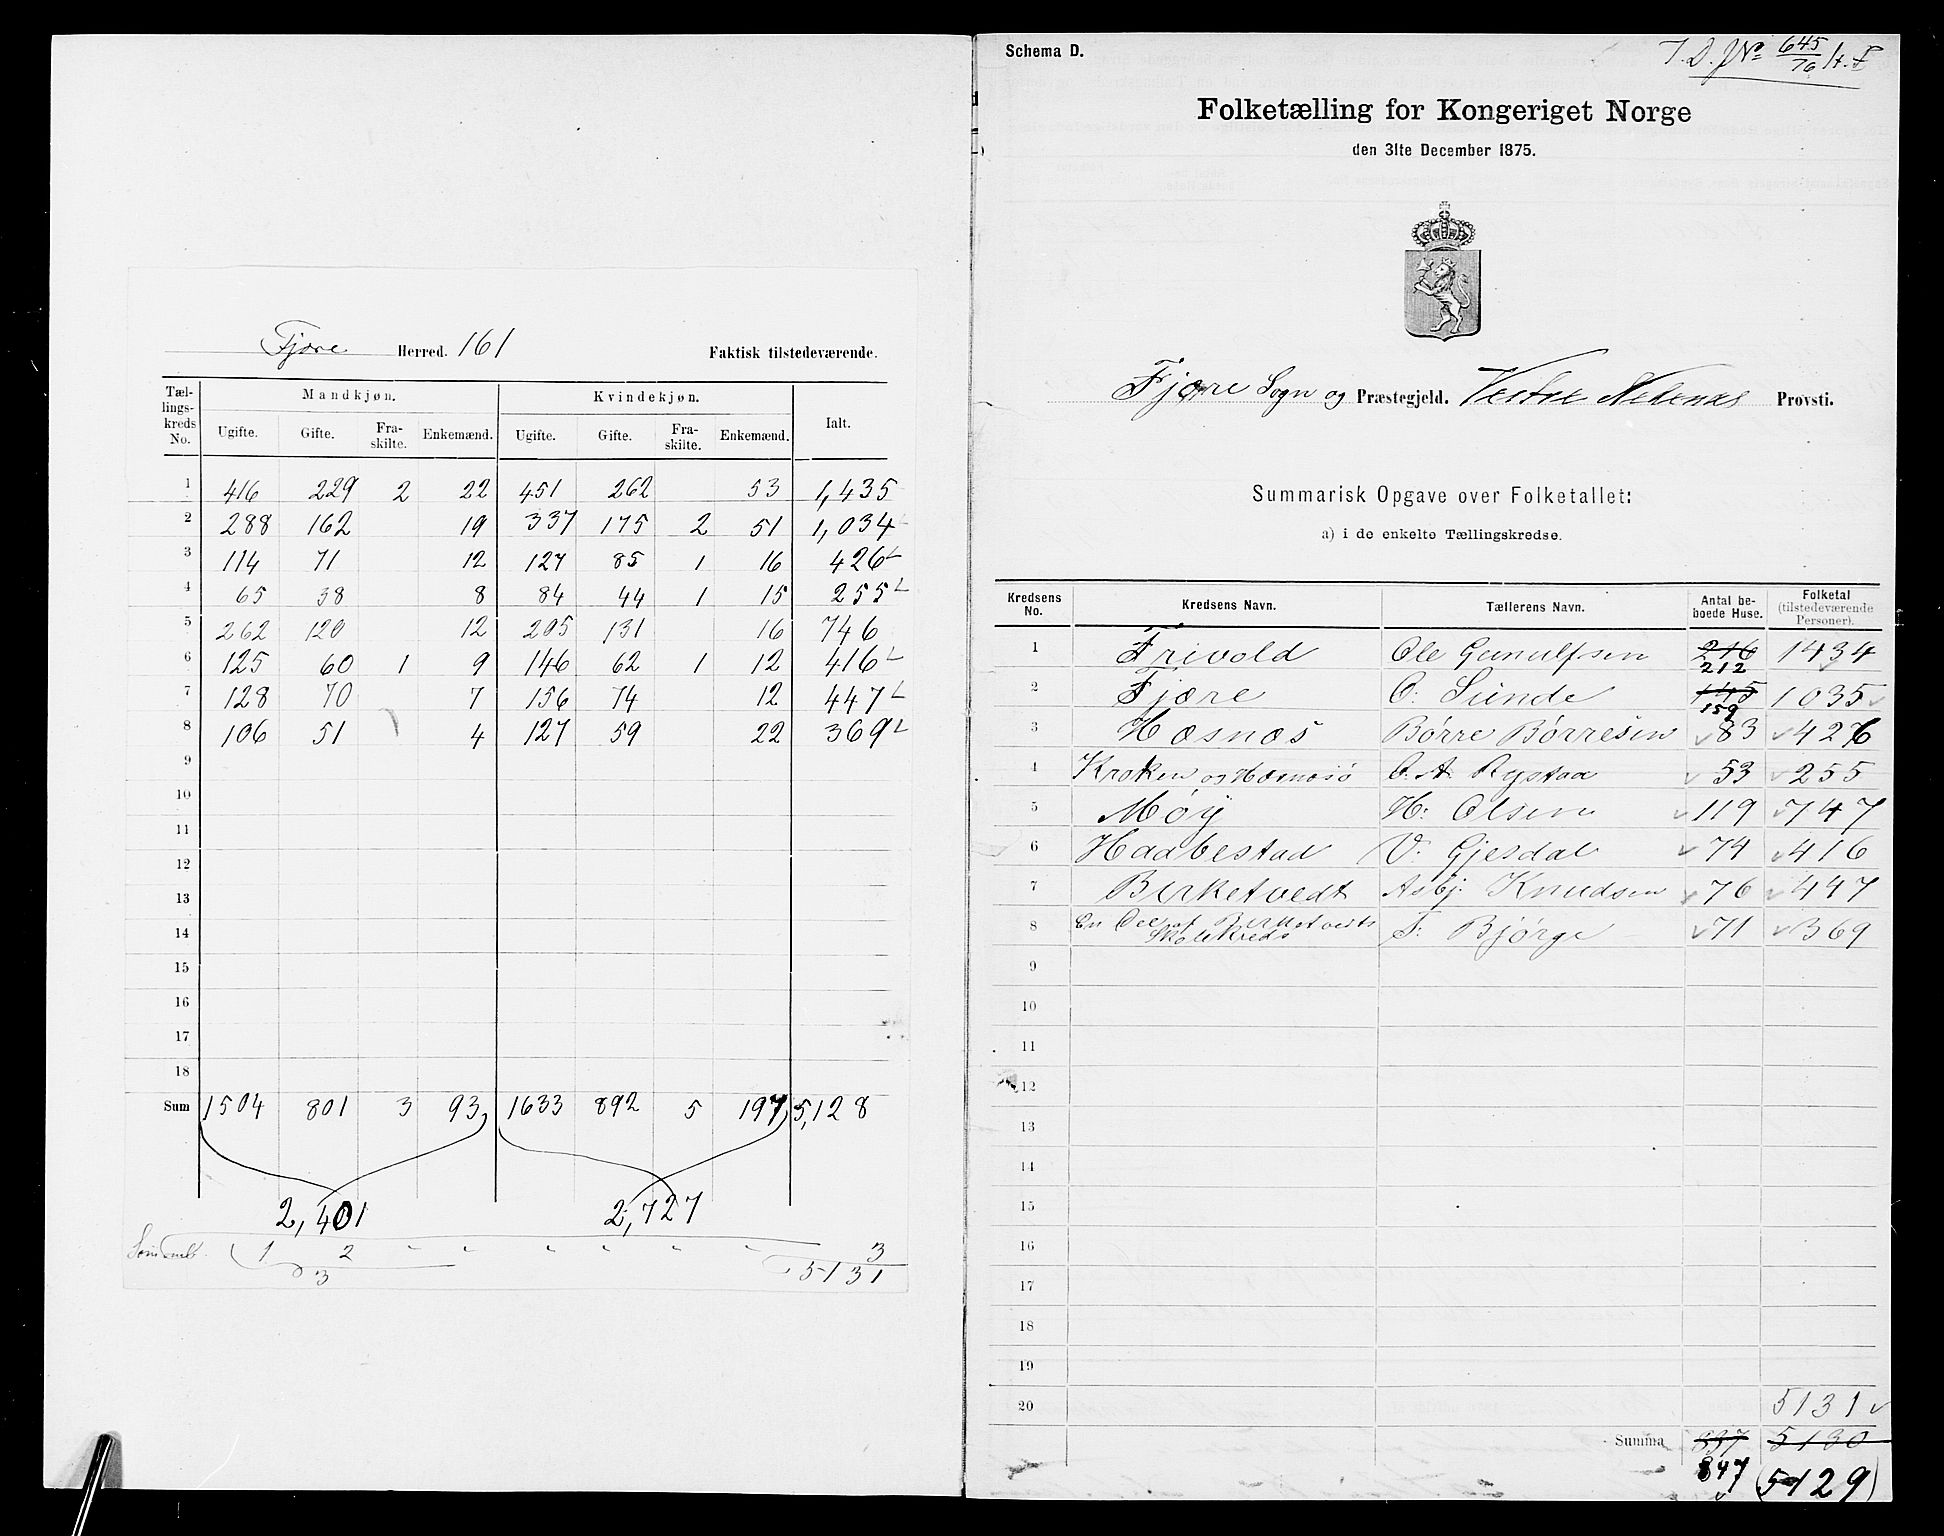 Fjære Herred. 161 Faktisk tilstedeværende.
Tællingskreds No. Mandkjøn. Kvindekjøn. Ialt.
Ugifte. Gifte. Fraskilte. Enkemænd. Ugifte. Gifte. Fraskilte. Enkemænd.
1 416 229 2 22 451 262 53 1,435
2 288 162 19 337 175 2 51 1,034
3 114 71 12 127 85 1 16 426
4 65 38 8 84 44 1 15 255
5 262 120 12 205 131 16 746
6 125 60 1 9 146 62 1 12 416
7 128 70 7 156 74 12 447
8 106 51 4 127 59 22 369
9
10
11
12
13
14
15
16
17
18
Sum 1504 801 3 93 1633 892 5 197 5,128
2,401 2,727
1 2 " " " " " " 3
3 5131
Schema D.
T. D. J No 645/76
Folketælling for Kongeriget Norge
den 31te December 1875.
Fjære Sogn og Præstegjeld. Vestre Nedenæs Provsti.
Summarisk Opgave over Folketallet:
a) i de enkelte Tællingskredse.
Kredsens No. Kredsens Navn. Tællerens Navn. Antal beboede Huse. Folketal (tilstedeværende Personer).
1 Frivold Ole Gunulfsen 216 212 1434
2 Fjære O. Sunde 145 159 1035
3 Hæsnæs Børre Børresen 83 426
4 Kroken og Hæsnæsø O. A. Rystad 53 255
5 Møy H: Olsen 119 747
6 Haabestad V. Gjesdal 74 416
7 Birketvedt Asbj. Knudsen 76 447
8 En Del af Birketvedts Skolekreds T: Bjørge 71 369
9
10
11
12
13
14
15
16
17
18
19
20 5131
Summa 837 5130
847 (5129)